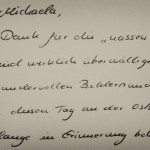 Michaela,
Dank für die „nassen
sind wirklich überwältig
wundervollen Bildern
diesen Tag an der Ost
lange in Erinnerung be